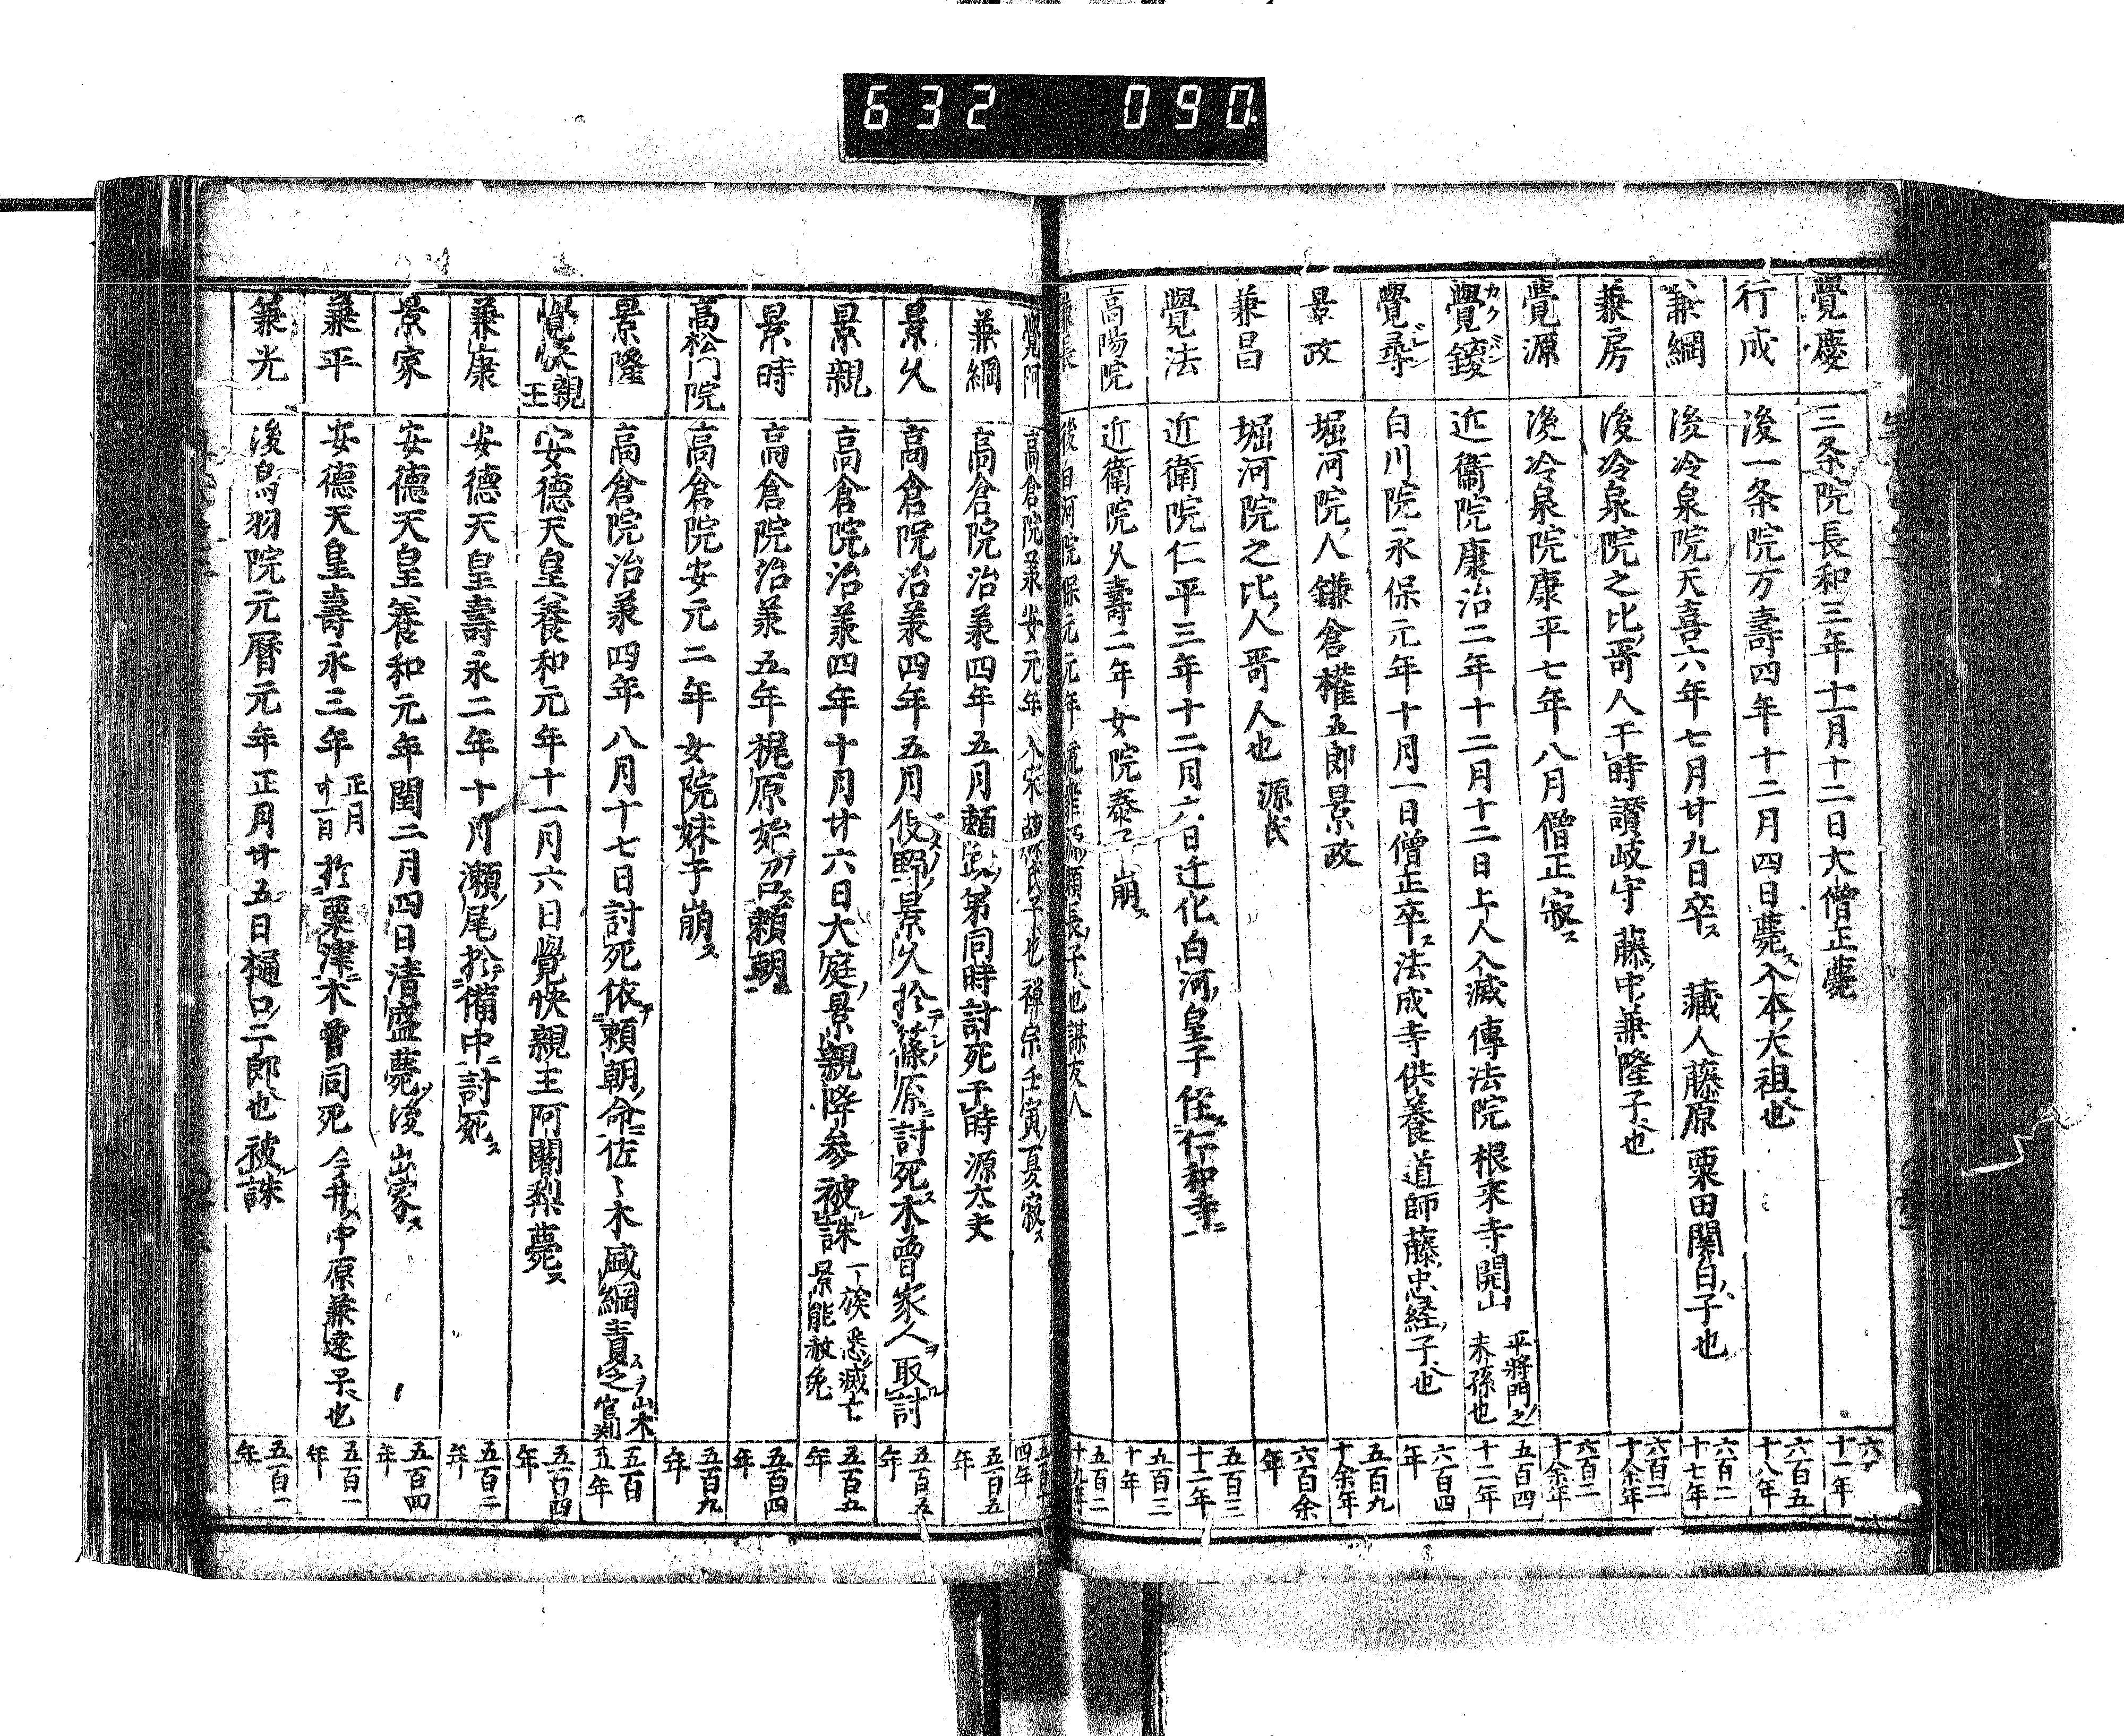 632 090
覺慶 三条院長和三年十一月十二日大僧正薨 十一年
行成 後一条院万壽四年十二月四日薨ス入木大祖也 六百五十八年
兼綱 後冷泉院天喜六年七月廿九日卒ス 藏人藤原粟田関白ノ子也 六百二十七年
兼房 後冷泉院之比ノ哥人于時讃岐守 藤中兼隆子也 六百二十余年
覺源 後冷泉院康平七年八月僧正寂ス 六百二十余年
覺鑁 カクバン 近衞院康治二年十二月十二日上人入滅傳法院根來寺開山 平將門之末孫也 五百四十二年
覺尋 白川院永保元年十月一日僧正卒ス法成寺供養道師藤忠経ノ子也 六百四年
景政 堀河院ノ人鎌倉權五郎景政 五百九十余年
兼昌 堀河院之比ノ人哥人也 源氏 六百余年
覺法 近衛院仁平三年十二月六日迁化白河ノ皇子住ス仁和寺ニ 五百三十二年
高陽院 近衛院久壽二年女院泰子崩ス 五百三十年
兼長 後白河院保元元年 頼長ノ子也謀叛人 五百二十九年
覺阿 高倉院兼安元年入宋 禅宗壬寅ノ夏寂ス 四年
兼綱 高倉院治兼四年五月頼政ノ弟同時討死于時源大夫 五百五年
景久 高倉院治兼四年五月俣野ノ景久於篠原ニ討死ス木曽家人ヲ取討 五百五年
景親 高倉院治兼四年十月廿六日大庭ノ景親降参被誅 一族悉ク滅亡景能赦免 五百五年
景時 高倉院治兼五年梶原始テ召頼朝ニ 五百四年
高松門院 高倉院安元二年女院妹子崩ス 五百九年
景隆 高倉院治兼四年八月十七日討死依テ頼朝ノ命ニ佐々木盛綱責ス之ヲ 山木官判 五百五年
覺快親王 安德天皇養和元年十一月六日覺快親王阿闍梨薨ス 五百四年
兼康 安德天皇壽永二年十月瀬尾於備中ニ討死ス 五百二年
景家 安德天皇養和元年閏二月四日清盛薨ノ後出家ス 五百四年
兼平 安德天皇壽永三年 正月廿一日 於粟津ニ木曽同死 今井ハ中原兼遠子也 五百一年
兼光 後鳥羽院元暦元年正月廿五日樋口ノ二郎也被誅 五百一年